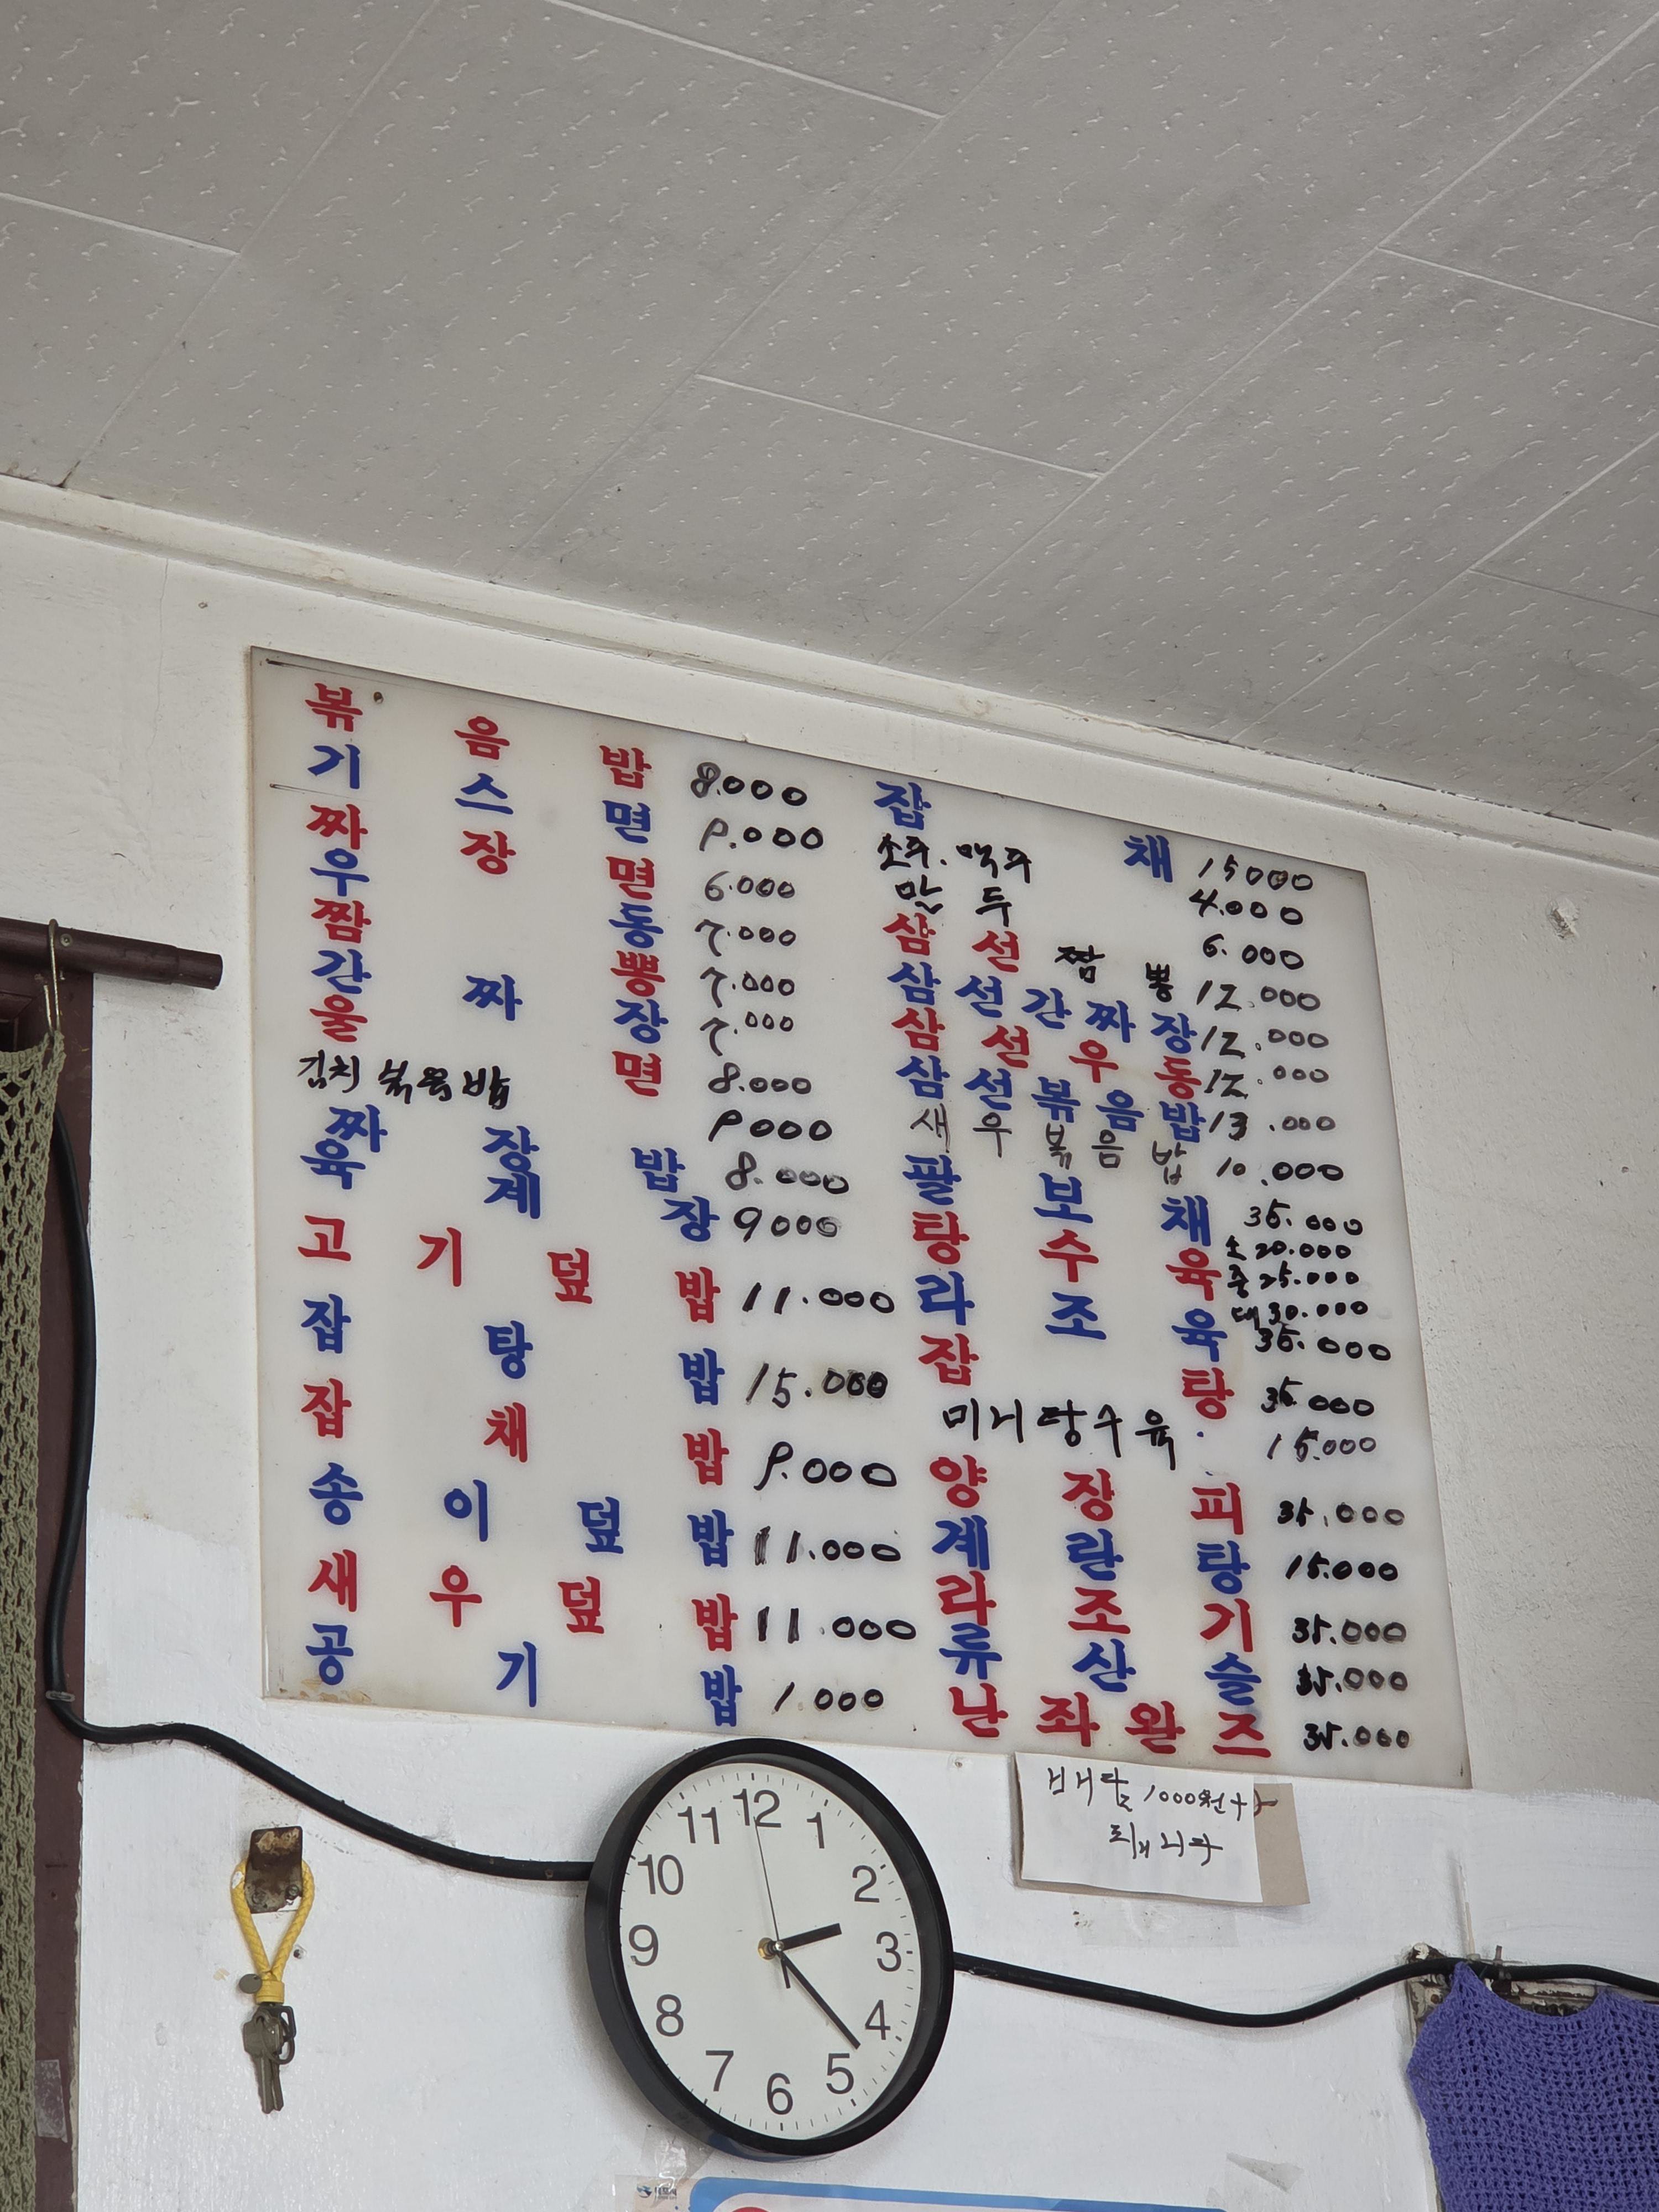 볶음밥 8.000
기스면 9.000
짜장면 6.000
우동 7.000
짬뽕 7.000
간짜장 7.000
울면 8.000
김치볶음밥 9000
짜장밥 8.000
육계장 9000
고기덮밥 11.000
잡탕밥 15.000
잡채밥 9.000
송이덮밥 11.000
새우덮밥 11.000
공기밥 1.000
잡채 15000
소주.맥주 4.000
만두 6.000
삼선짬뽕 12.000
삼선간짜장 12.000
삼선우동 12.000
삼선볶음밥 13.000
새우볶음밥 10.000
팔보채 35.000
탕수육 소 20.000
중 25.000
대 30.000
라조육 35.000
잡탕 35.000
미니탕수육 15.000
양장피 35.000
계란탕 15.000
라조기 35.000
류산슬 35.000
난좌완즈 35.000
1000원
12
1
2
3
4
5
6
7
8
9
10
11